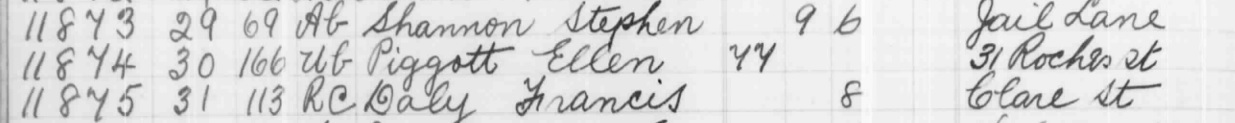 11873 29 69 Ab Shannon Stephen 9 6 Jail Lane
11874 30 166 Ub Piggott Ellen 77 31 Roches st
11875 31 113 RC Daly Francis 8 Clare St